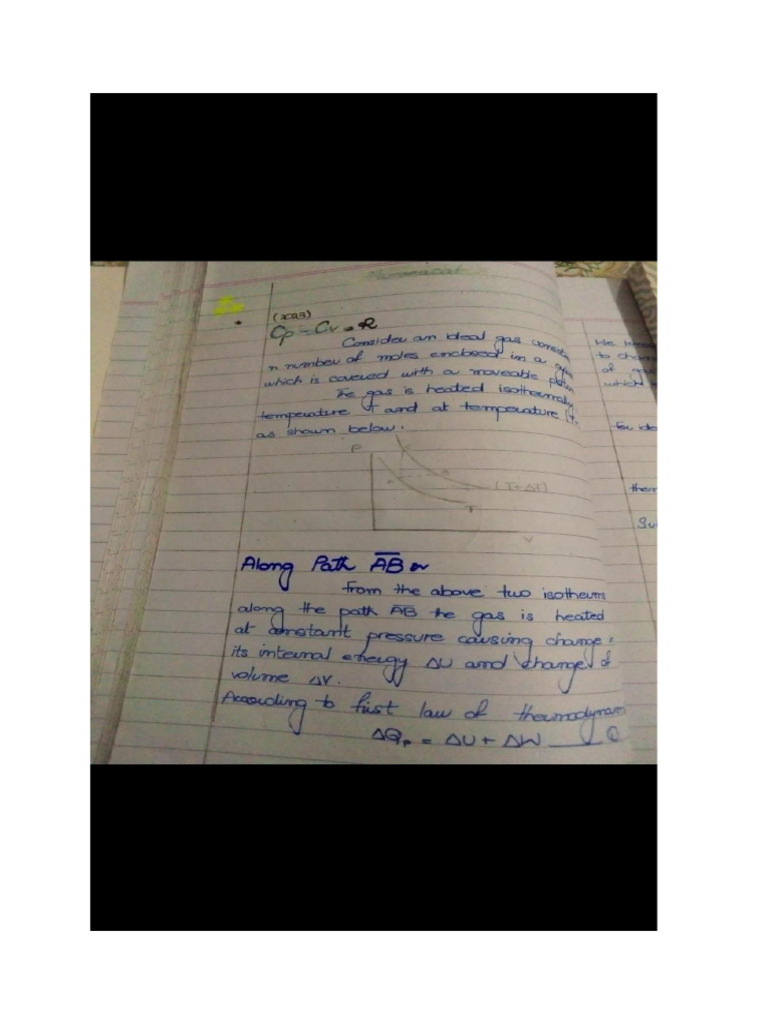 Numerical
(x03)
Cp - Cv = R
Consider an ideal gas consist
n number of moles enclosed in a
which is covered with a moveable piston
The gas is heated isothermally
temperature T and at temperature
as shown below.
P
(T+ΔT)
T
V
Along Path AB
From the above two isotherms
along the path AB the gas is heated
at constant pressure causing change
its internal energy ΔU and change of
volume ΔV.
According to first law of thermodynam
ΔQp = ΔU + ΔW ___ ①
We
to chan
of
which
For ide
ther
Su